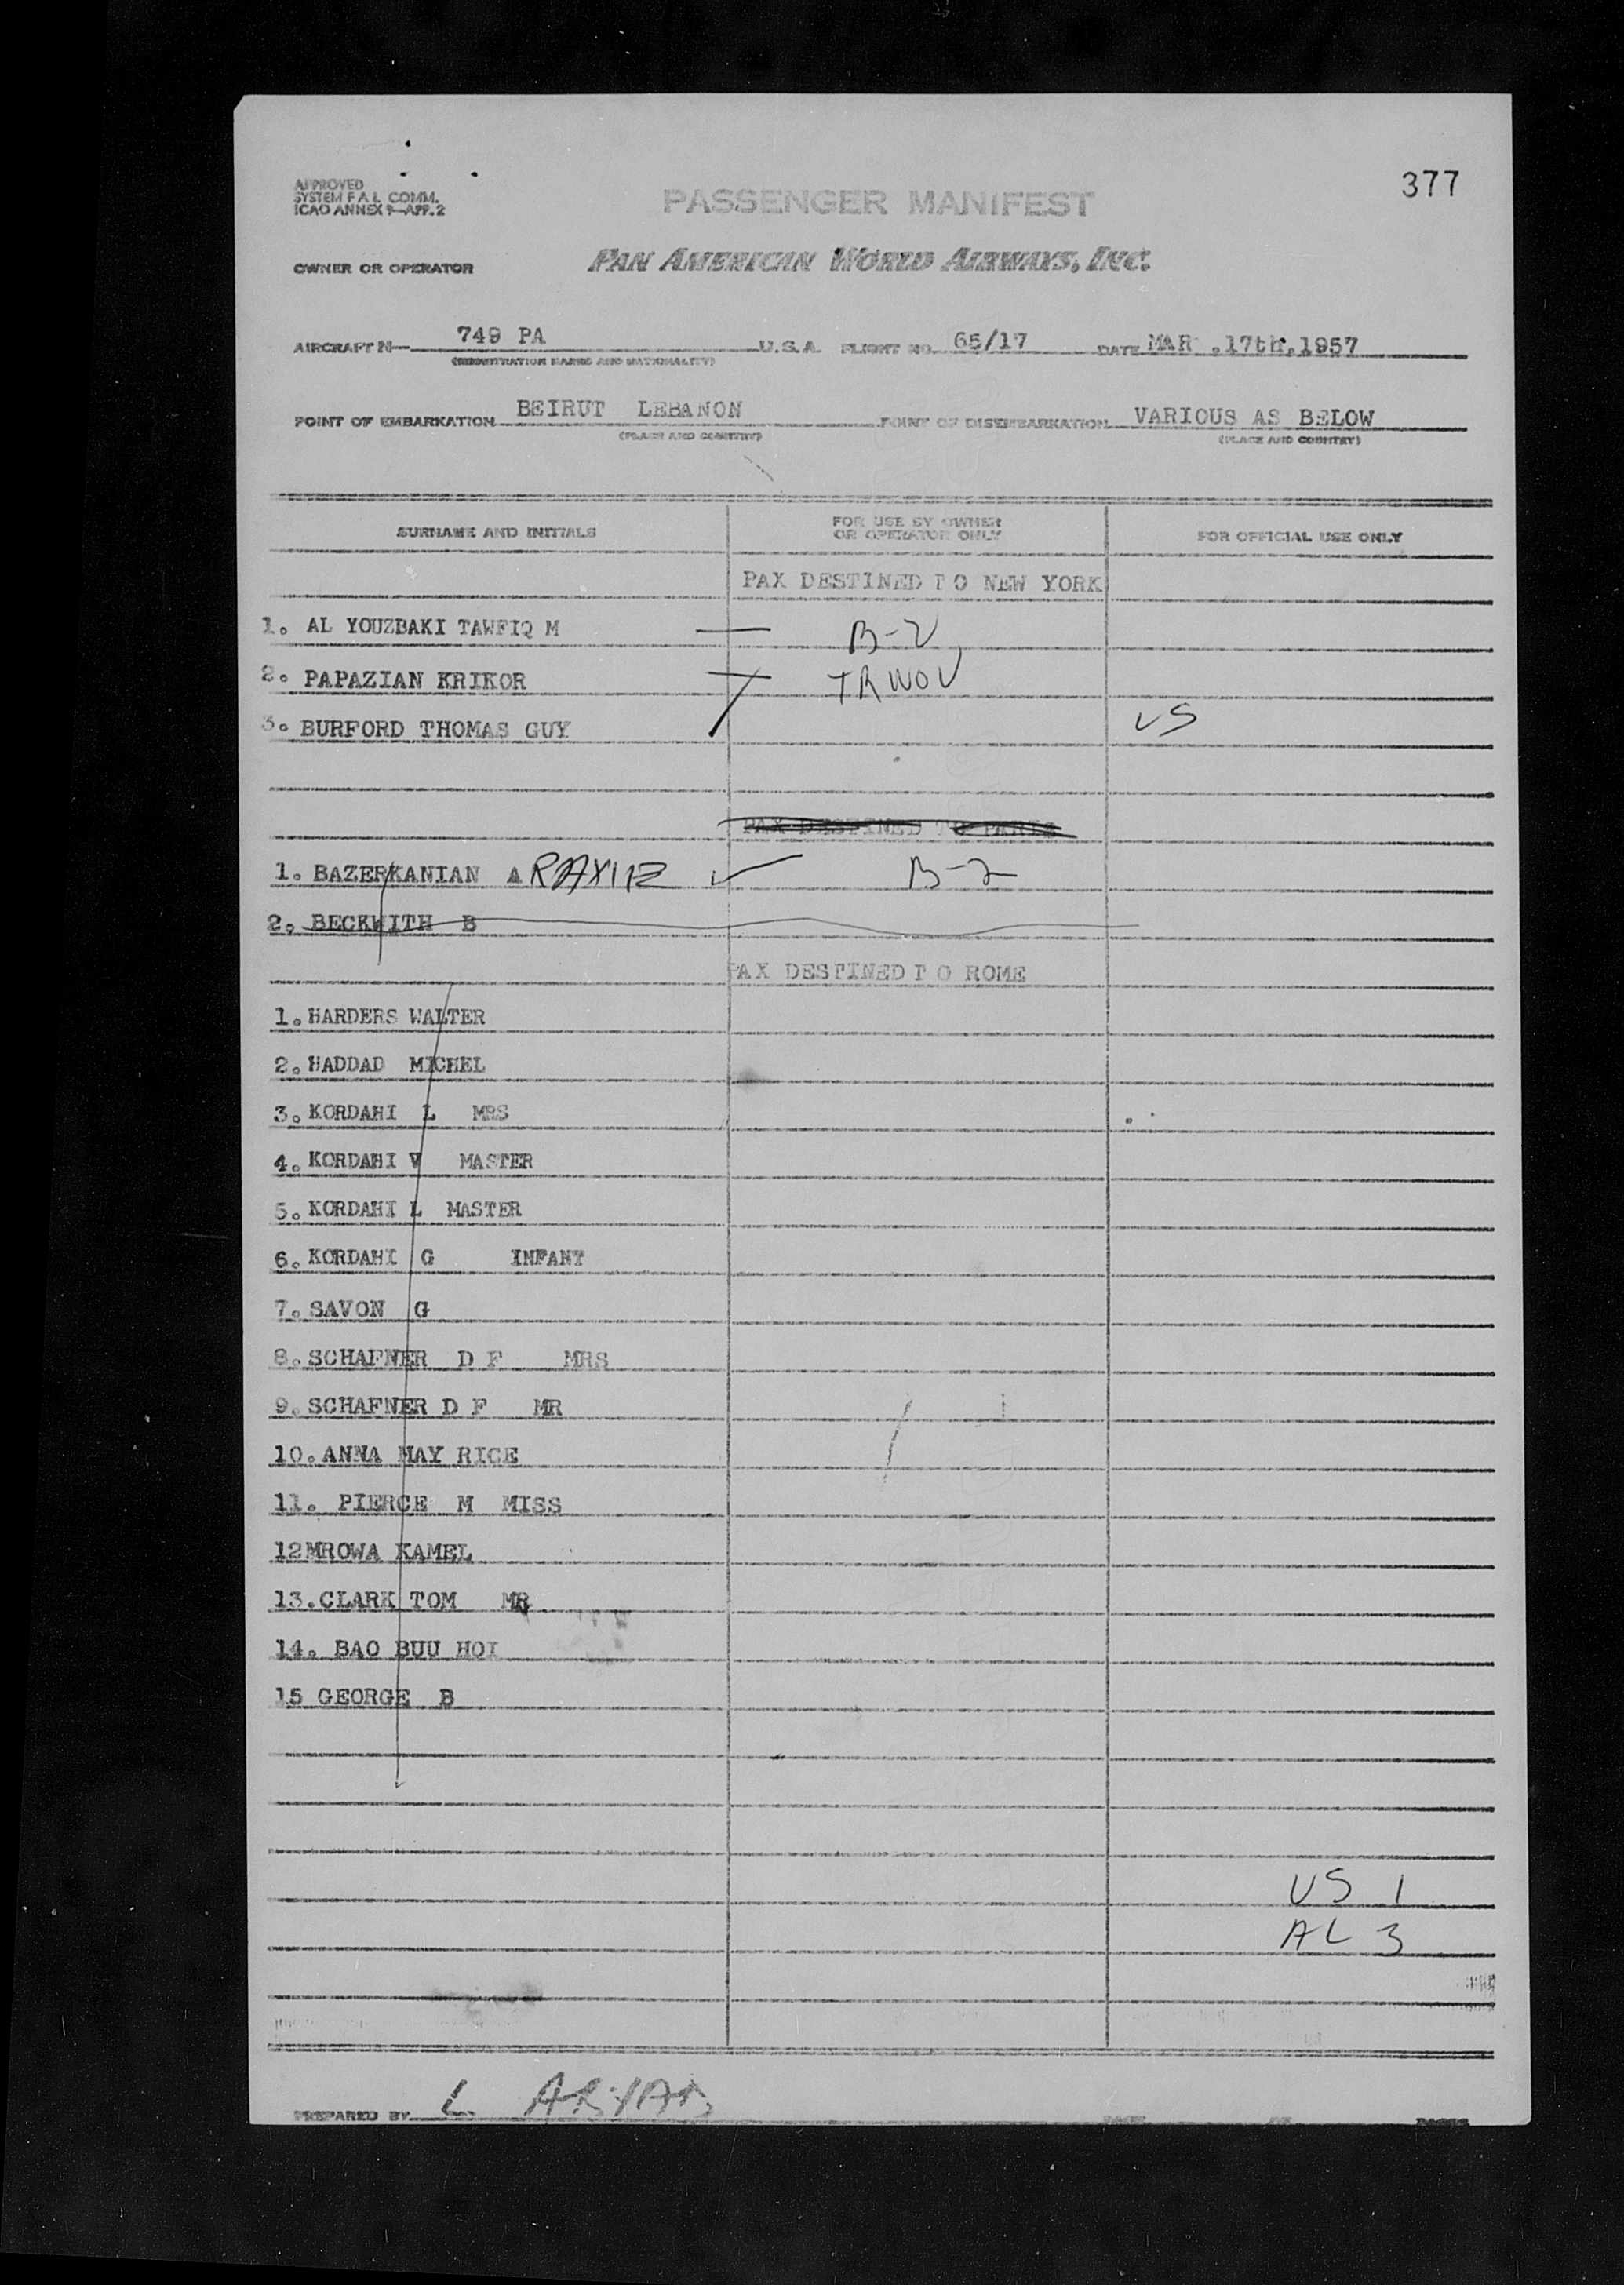 377
APPROVED
SYSTEM F A L COMM.
ICAO ANNEX 9—APP. 2
PASSENGER MANIFEST
OWNER OR OPERATOR PAN AMERICAN WORLD AIRWAYS, INC.
AIRCRAFT N— 749 PA U.S.A. FLIGHT NO. 65/17 DATE MAR ,17th,1957
(REGISTRATION MARKS AND NATIONALITY)
POINT OF EMBARKATION BEIRUT LEBANON POINT OF DISEMBARKATION VARIOUS AS BELOW
(PLACE AND COUNTRY) (PLACE AND COUNTRY)
SURNAME AND INITIALS FOR USE BY OWNER OR OPERATOR ONLY FOR OFFICIAL USE ONLY
PAX DESTINED TO NEW YORK
1. AL YOUZBAKI TAWFIQ M — B-2
2. PAPAZIAN KRIKOR TRWOV
3. BURFORD THOMAS GUY US
PAX DESTINED TO PARIS
1. BAZERKANIAN A ✓ B-2
2. BECKWITH B
PAX DESTINED TO ROME
1. HARDERS WALTER
2. HADDAD MICHEL
3. KORDAHI L MRS
4. KORDAHI V MASTER
5. KORDAHI L MASTER
6. KORDAHI G INFANT
7. SAVON G
8. SCHAFNER D F MRS
9. SCHAFNER D F MR
10. ANNA MAY RICE
11. PIERCE M MISS
12 MROWA KAMEL
13. CLARK TOM MR
14. BAO BUU HOI
15 GEORGE B
US 1
AL 3
PREPARED BY L.